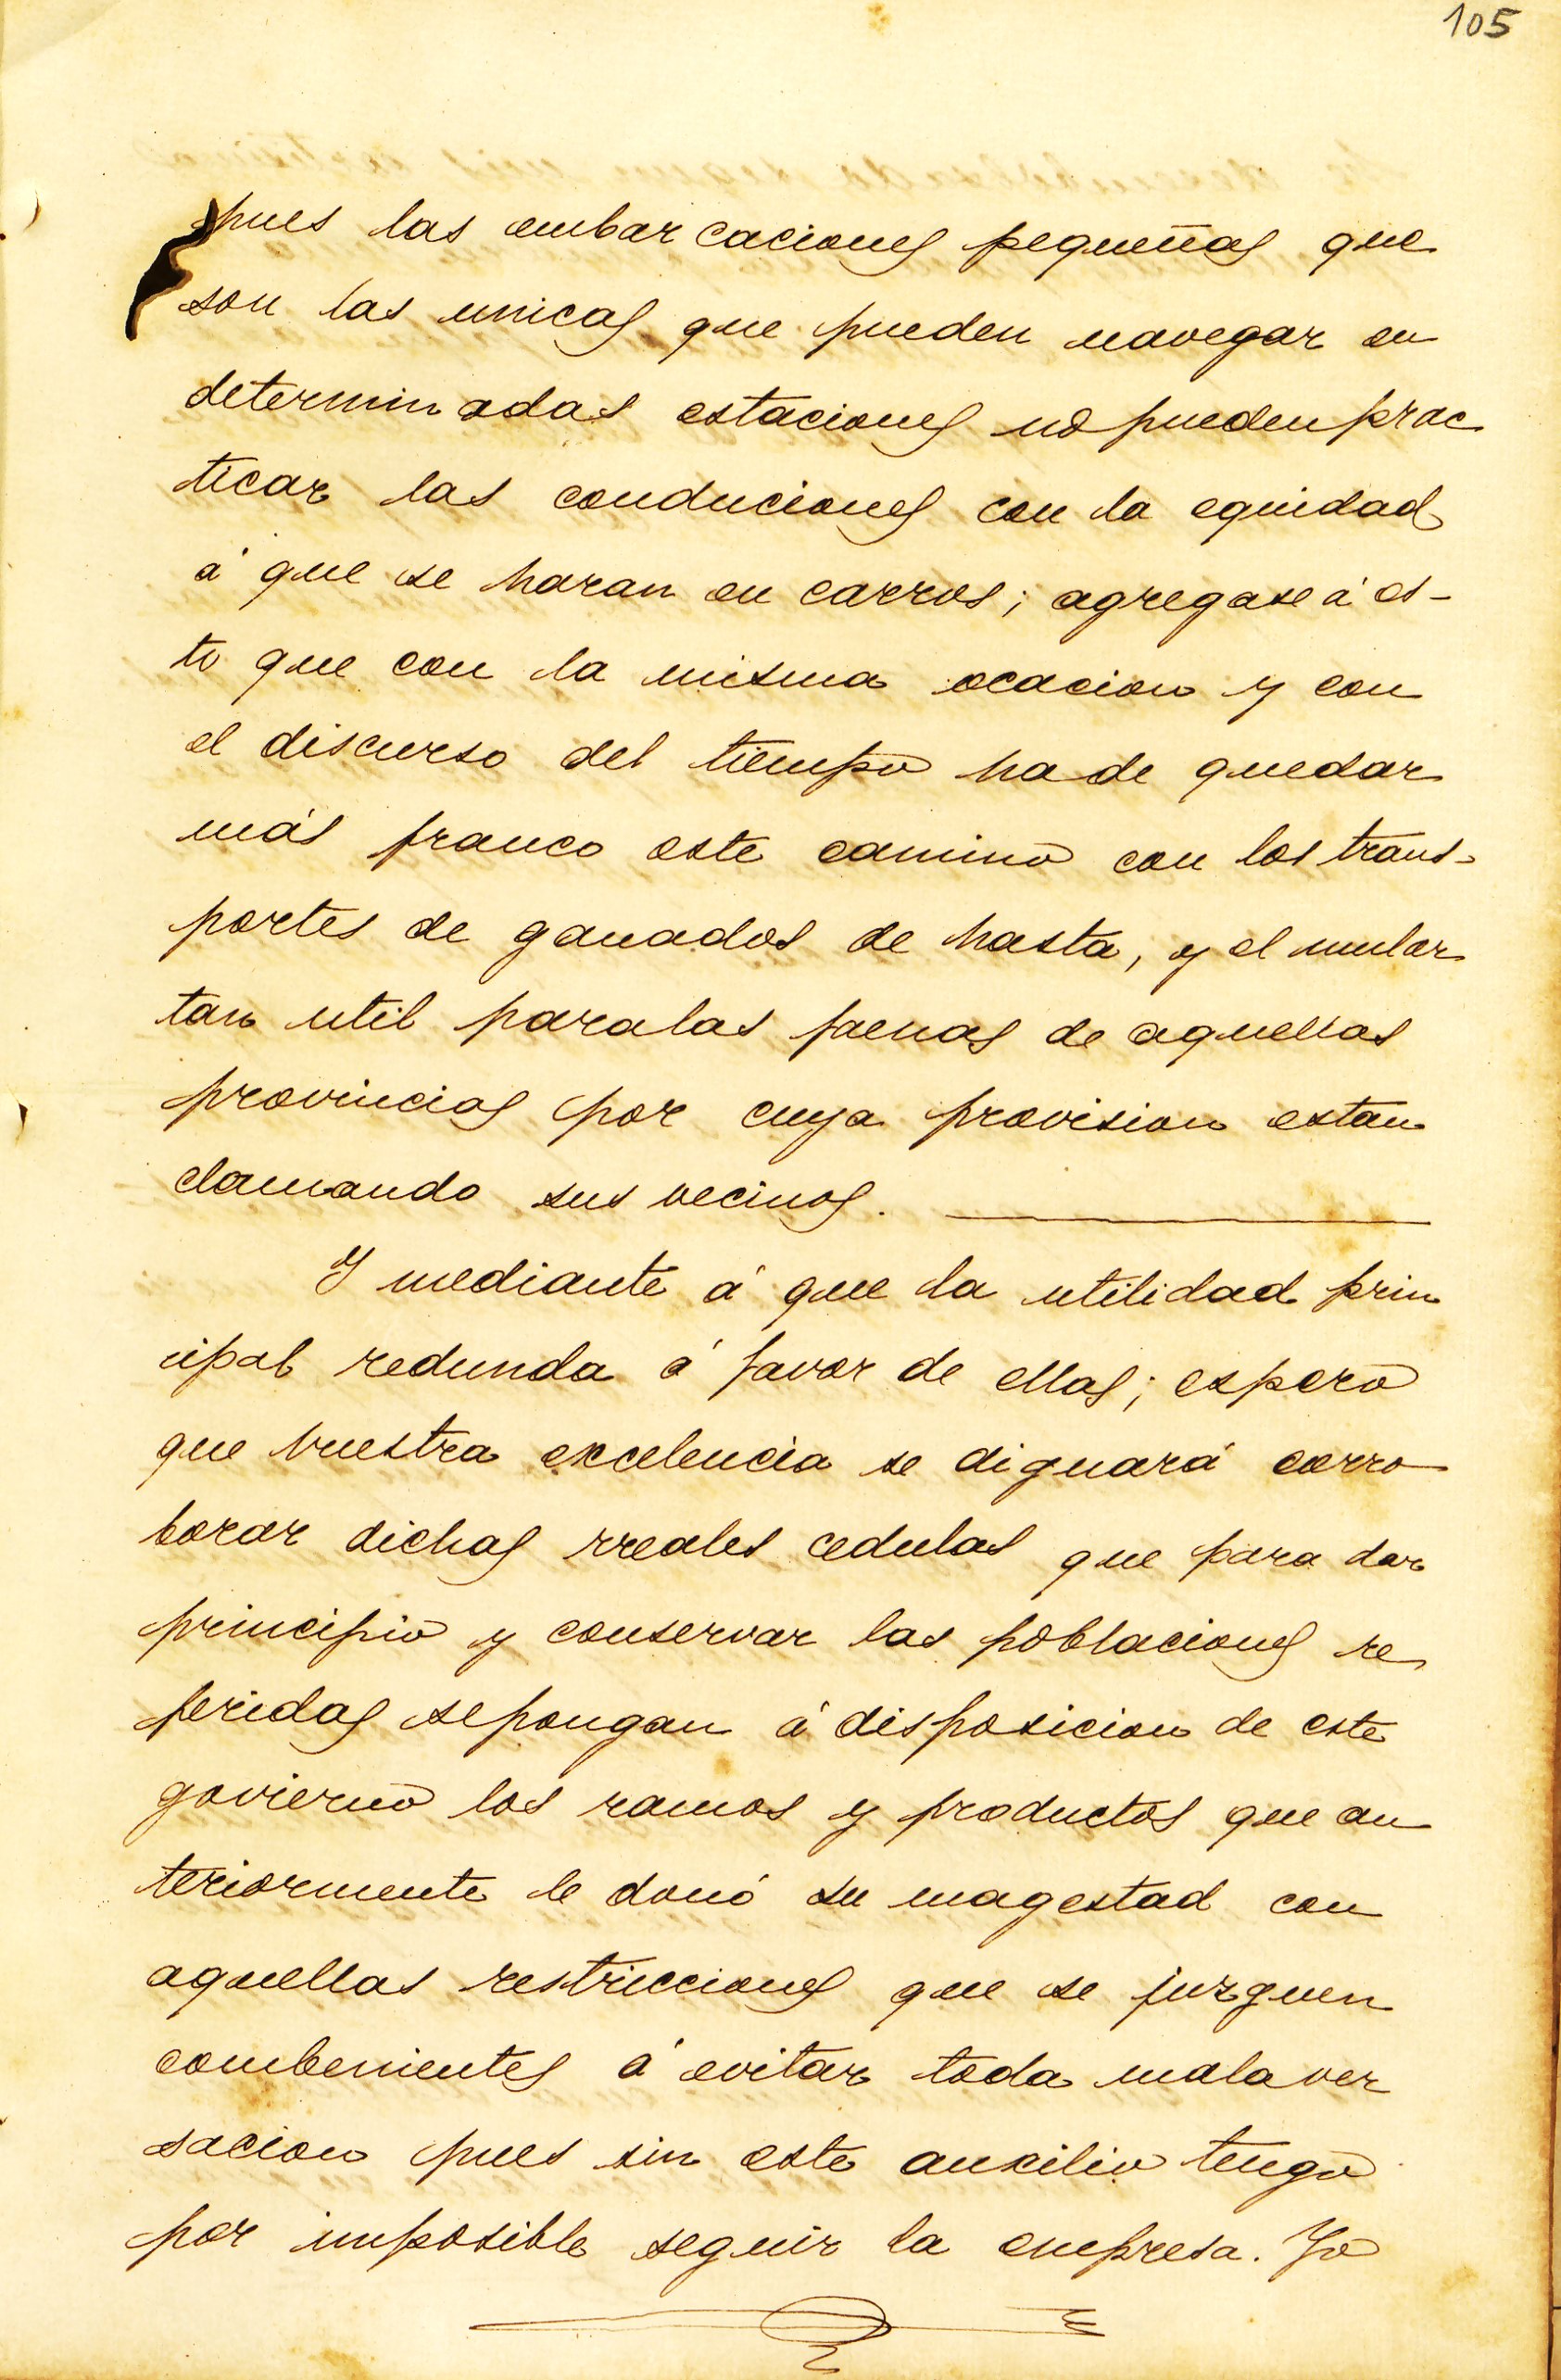 105
pues las embarcaciones pequeñas que
son las unicas que pueden navegar en
determinadas estaciones no pueden prac
ticar las conduciones con la equidad
á que se haran en carros; agregase á es-
to que con la misma ocacion y con
el discurso del tiempo ha de quedar
más franco este camino con los trans-
portes de ganados de hasta, y el mular
tan util para las faenas de aquellas
provincias por cuya provision estan
clamando sus vecinos.
Y mediante á que la utilidad prin
cipal redunda á favor de ellas; espero
que vuestra excelencia se dignará corro
borar dichas rreales cedulas que para dar
principio y conservar las poblaciones re
feridas se pongan á disposicion de este
govierno los ramos y productos que an
teriormente le donó su magestad con
aquellas restricciones que se juzguen
combenientes á evitar toda malaver
sacion pues sin este auxilio tengo
por imposible seguir la empresa. Yo